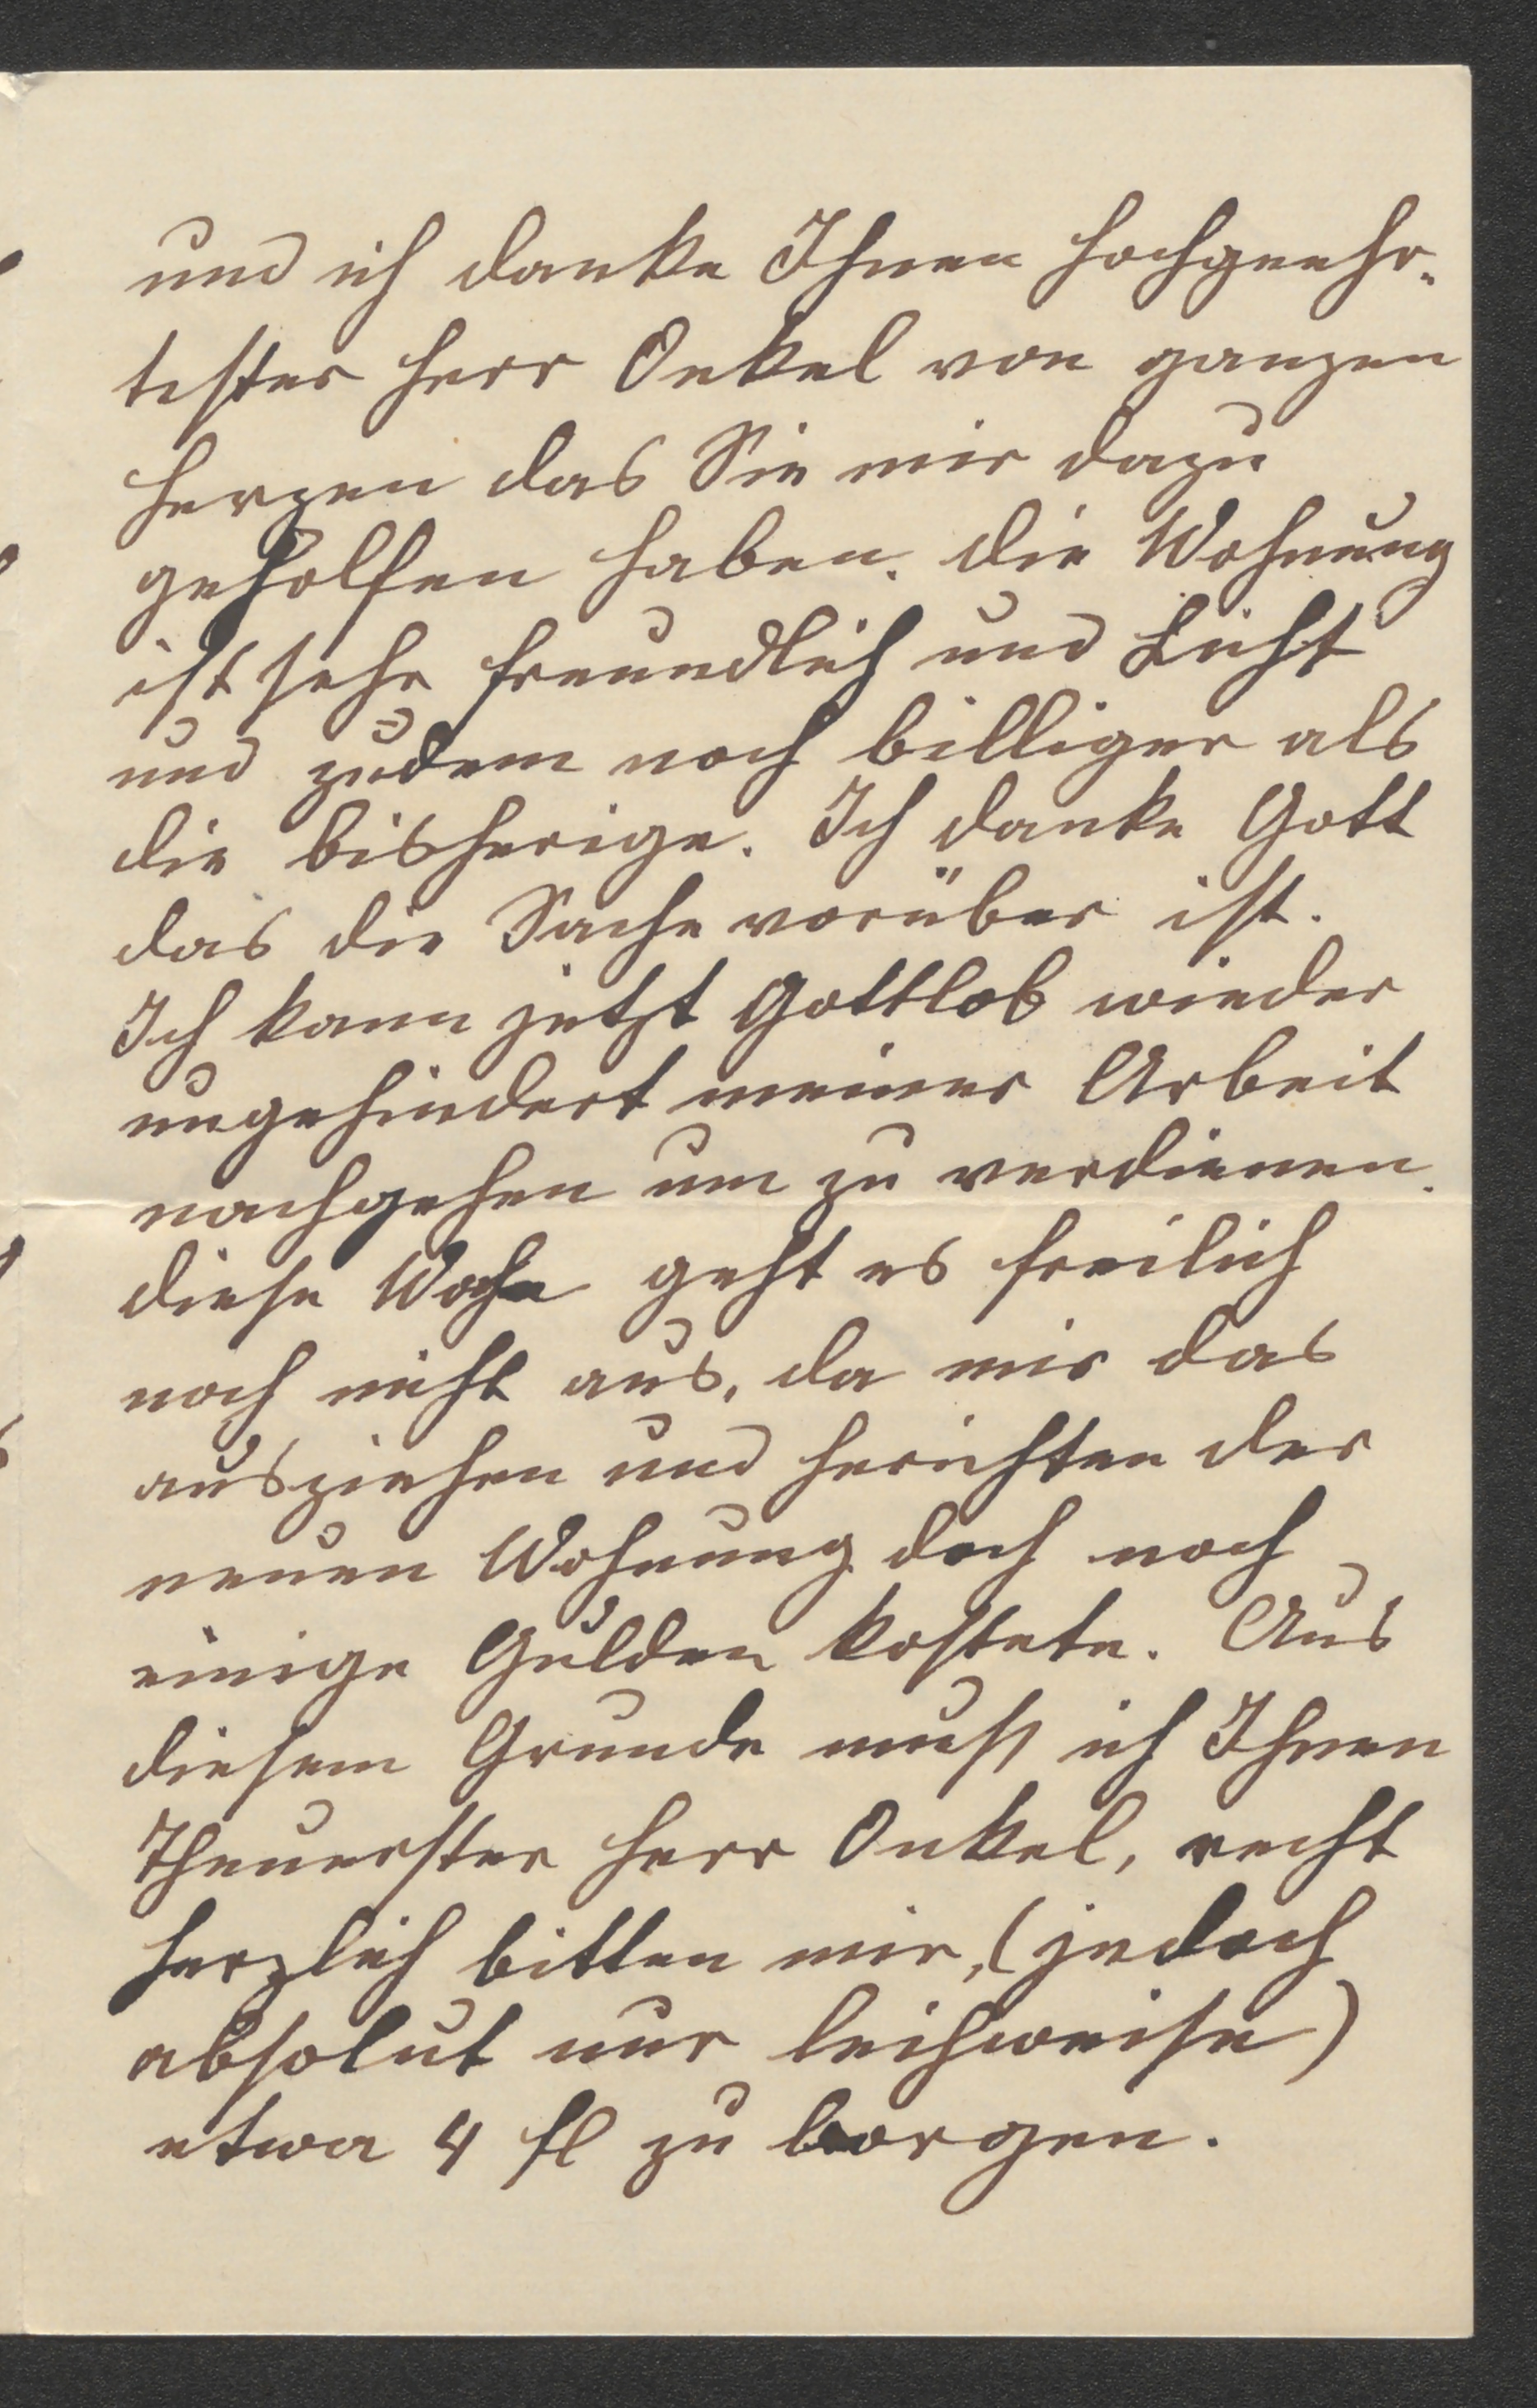 und ich danke Ihnen hochgeehr-
tester Herr Onkel von ganzen
Herzen das Sie mir dazu
geholfen haben. die Wohnung
ist sehr freundlich und Licht
und zudem noch billiger als
die bisherige. Ich danke Gott
das die Sache vorüber ist.
Ich kann jetzt Gottlob wieder
ungehindert meiner Arbeit
nachgehen um zu verdienen.
diese Woche geht es freilich
noch nicht aus, da mir das
ausziehen und herichten der
neuen Wohnung doch noch
einige Gulden kostete. Aus
diesem Grunde muß ich Ihnen
Theuerster Herr Onkel, recht
herzlich bitten mir, (jedoch
absolut nur leihweise)
etwa 4 fl zu borgen.